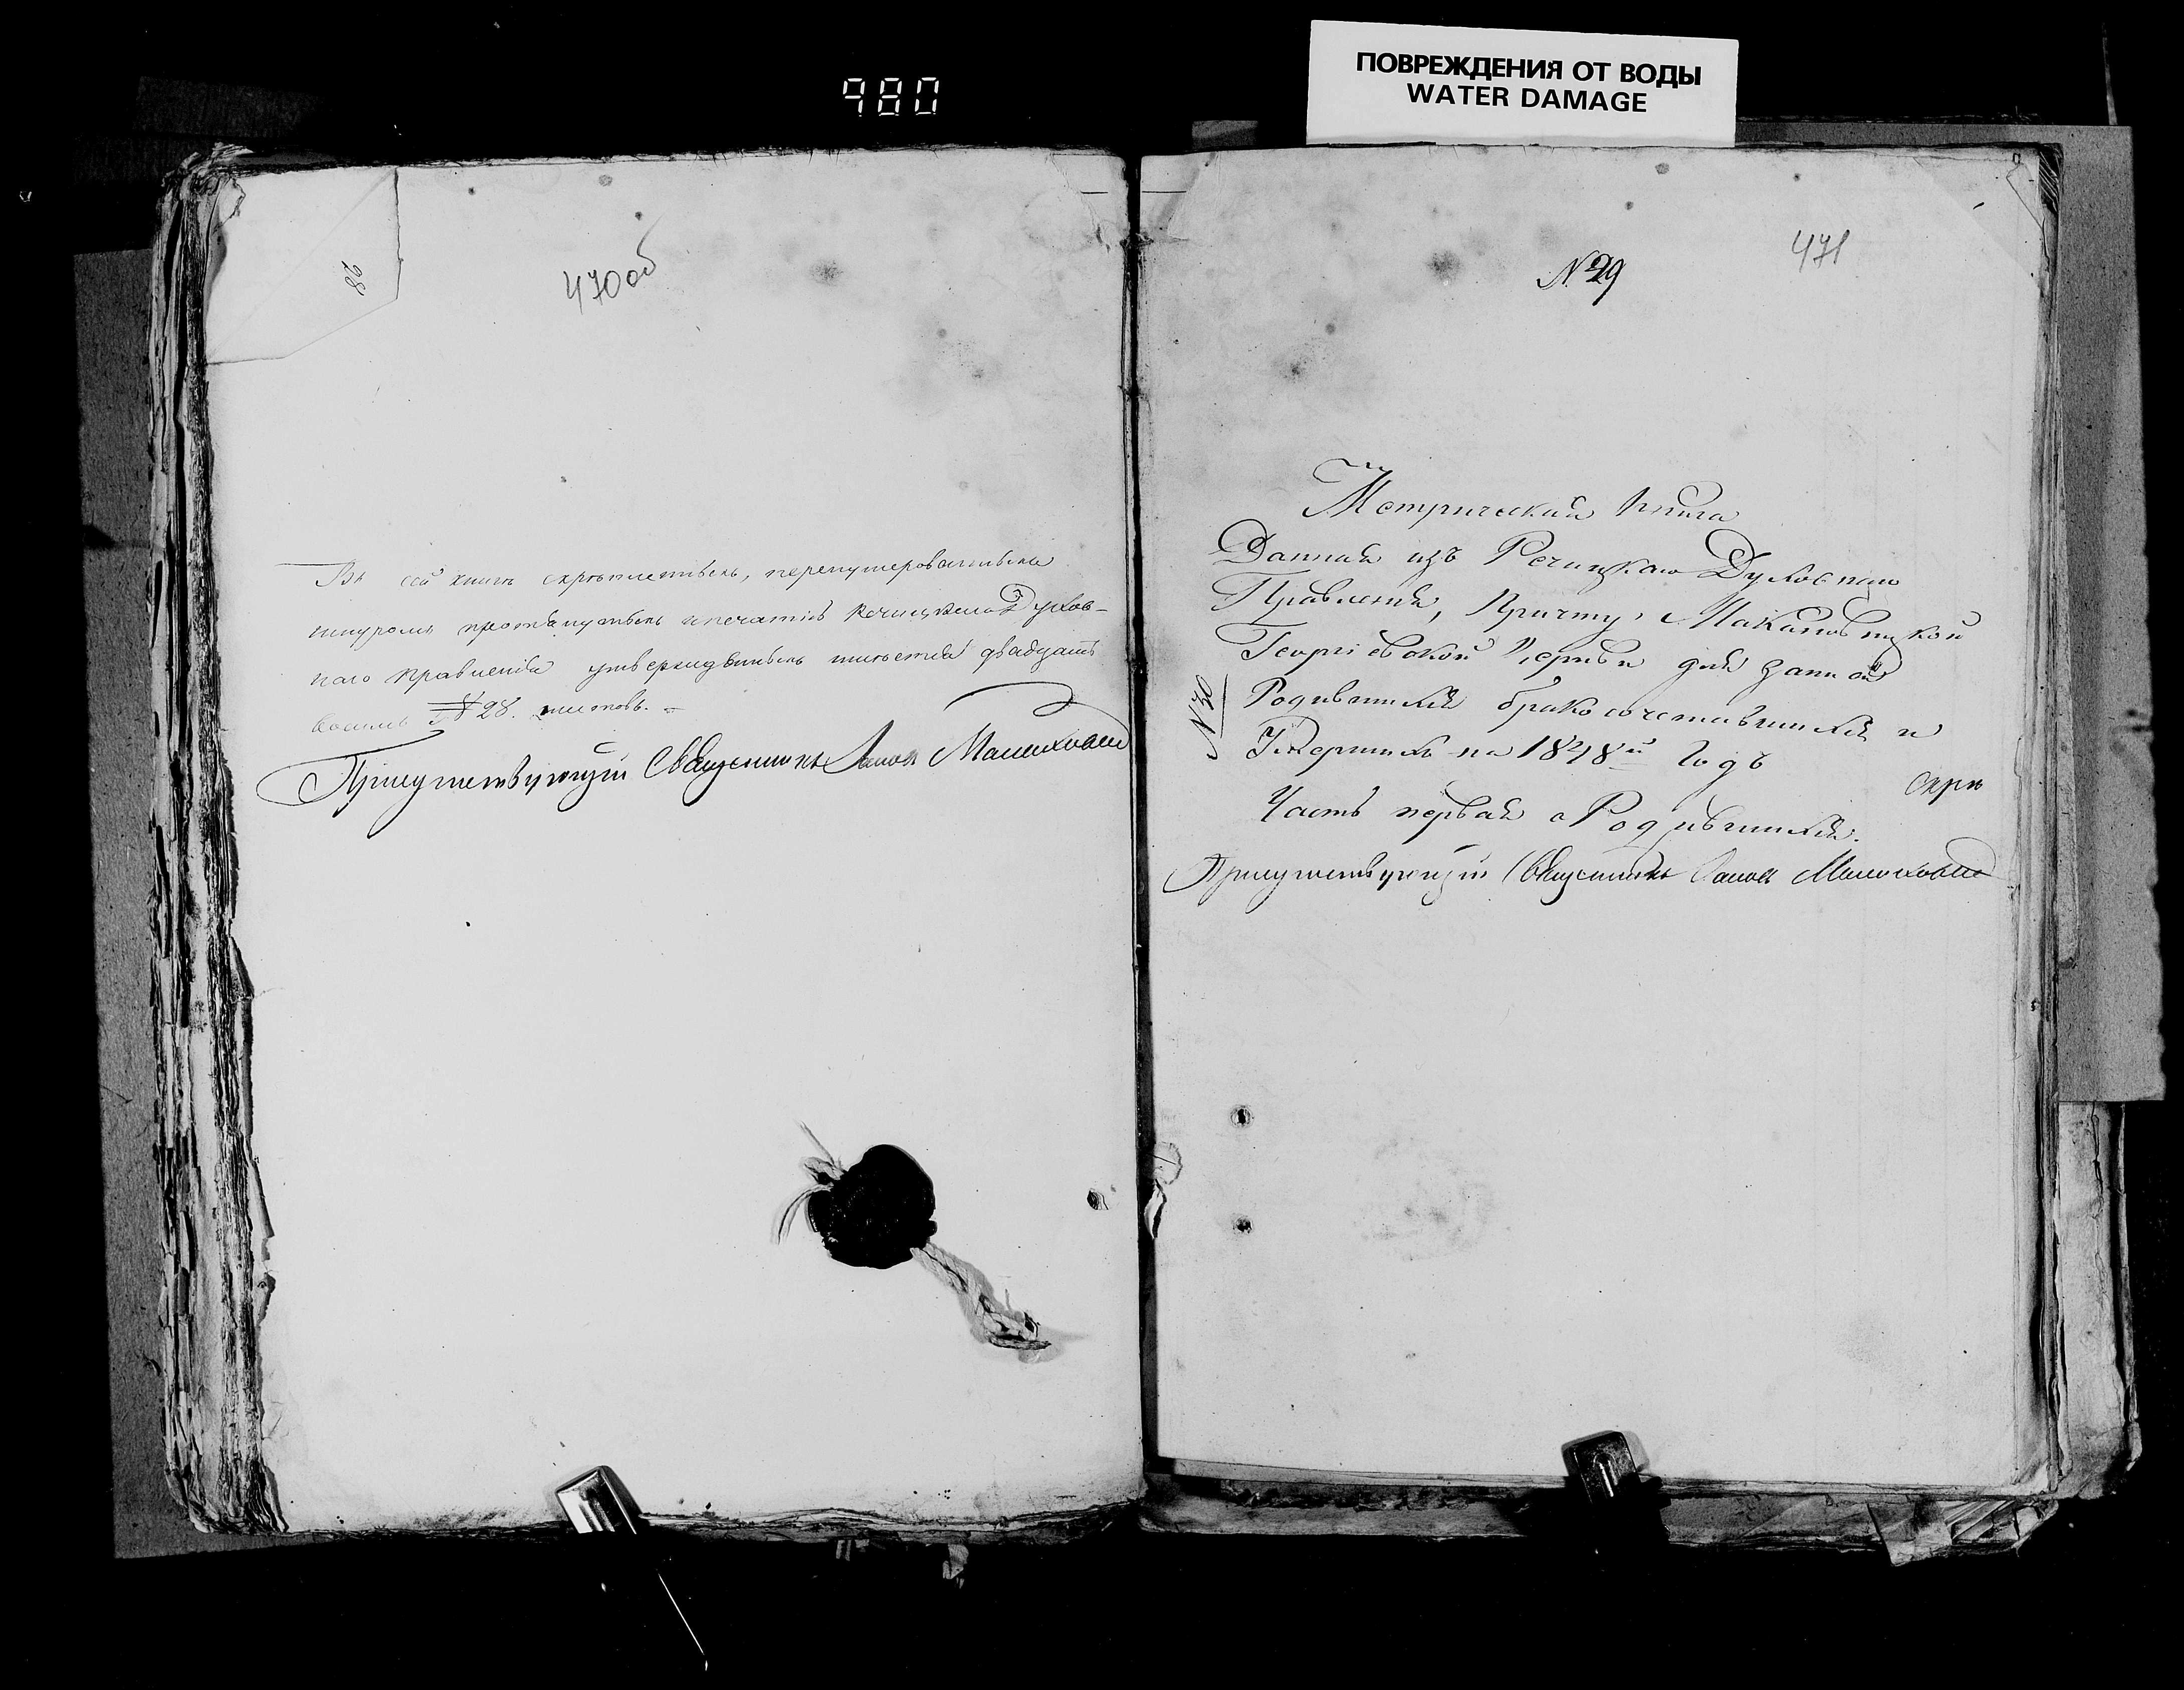 980
ПОВРЕЖДЕНИЯ ОТ ВОДЫ
WATER DAMAGE
28
470 об
Въ сей книгѣ скрѣпленныхъ, перенумерованныхъ
шнуромъ протянутыхъ и печатью Речицкаго Духов-
наго Правленія утвержденныхъ двадцать
восемь 28. листовъ.
Присутствующій Священникъ
471
№ 29
Метрическая Книга
Данная изъ Речицкаго Духовнаго
Правленія, Причту, Макановицкой
Георгіевской Церкви для записи
№ 30
Родившихся бракосочетавшихся и
Умершихъ на 1848й Годъ
скрѣ
Часть первая о Родившихся.
Присутствующій Священникъ